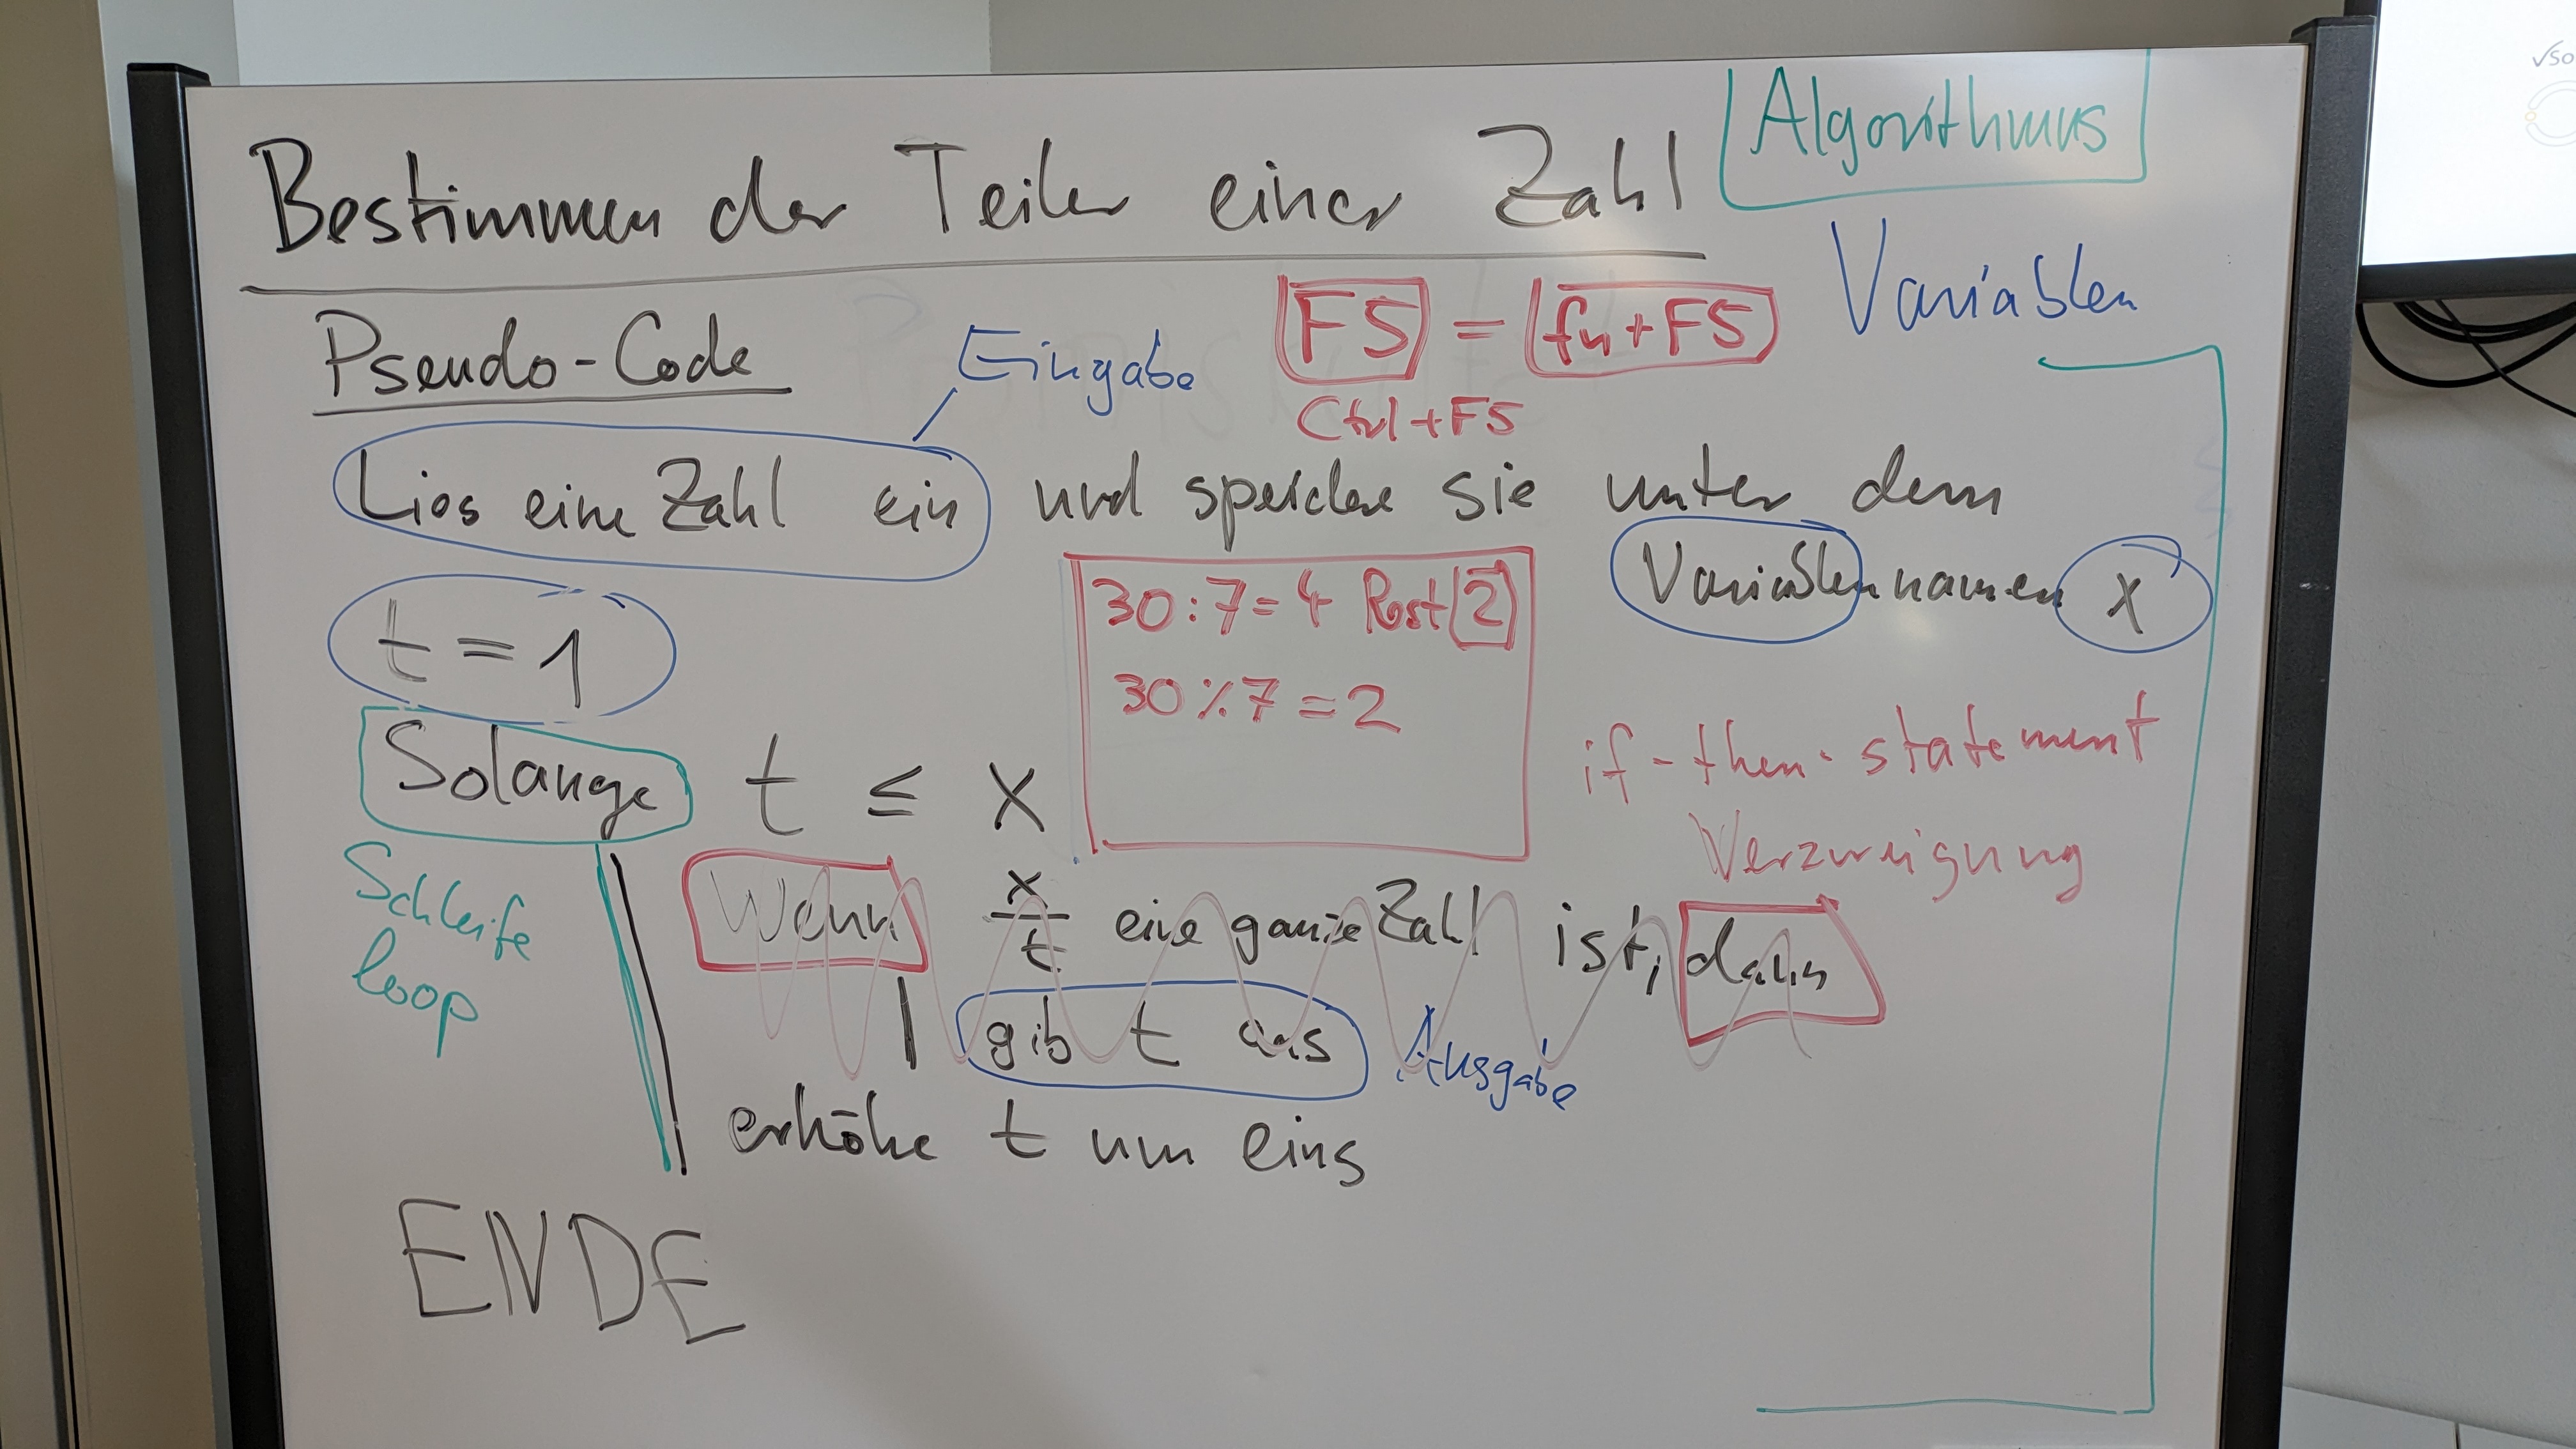 Bestimmen der Teiler einer Zahl
Algorithmus
Variablen
Pseudo-Code
Eingabe
F5 = fn+F5
Ctrl+F5
Lies eine Zahl ein und speichere sie unter dem
Variablennamen x
30:7=4 Rest 2
30%7=2
t = 1
Solange t ≤ x
if-then-statement
Verzweigung
Schleife
loop
Wenn x/t eine ganze Zahl ist, dann
gib t aus
Ausgabe
erhöhe t um eins
ENDE
√so